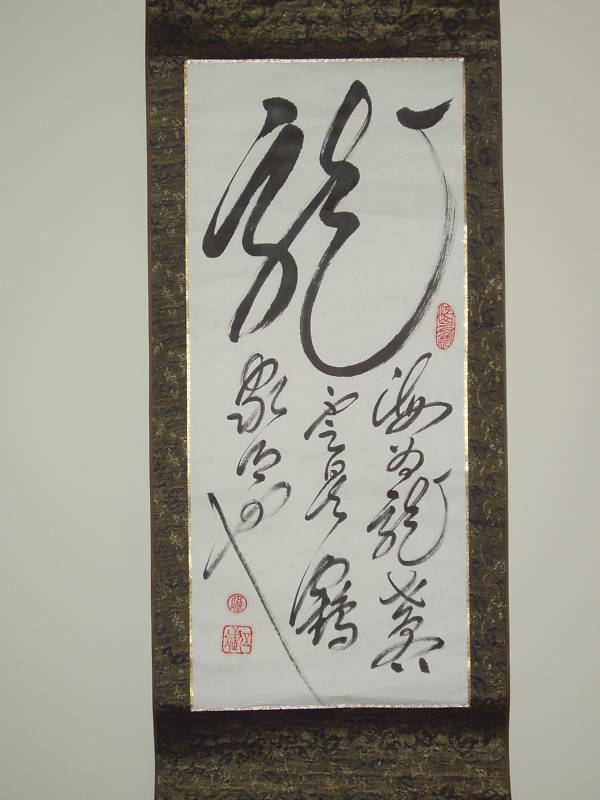 龍
海為龍世界
雲是鶴
家鄉